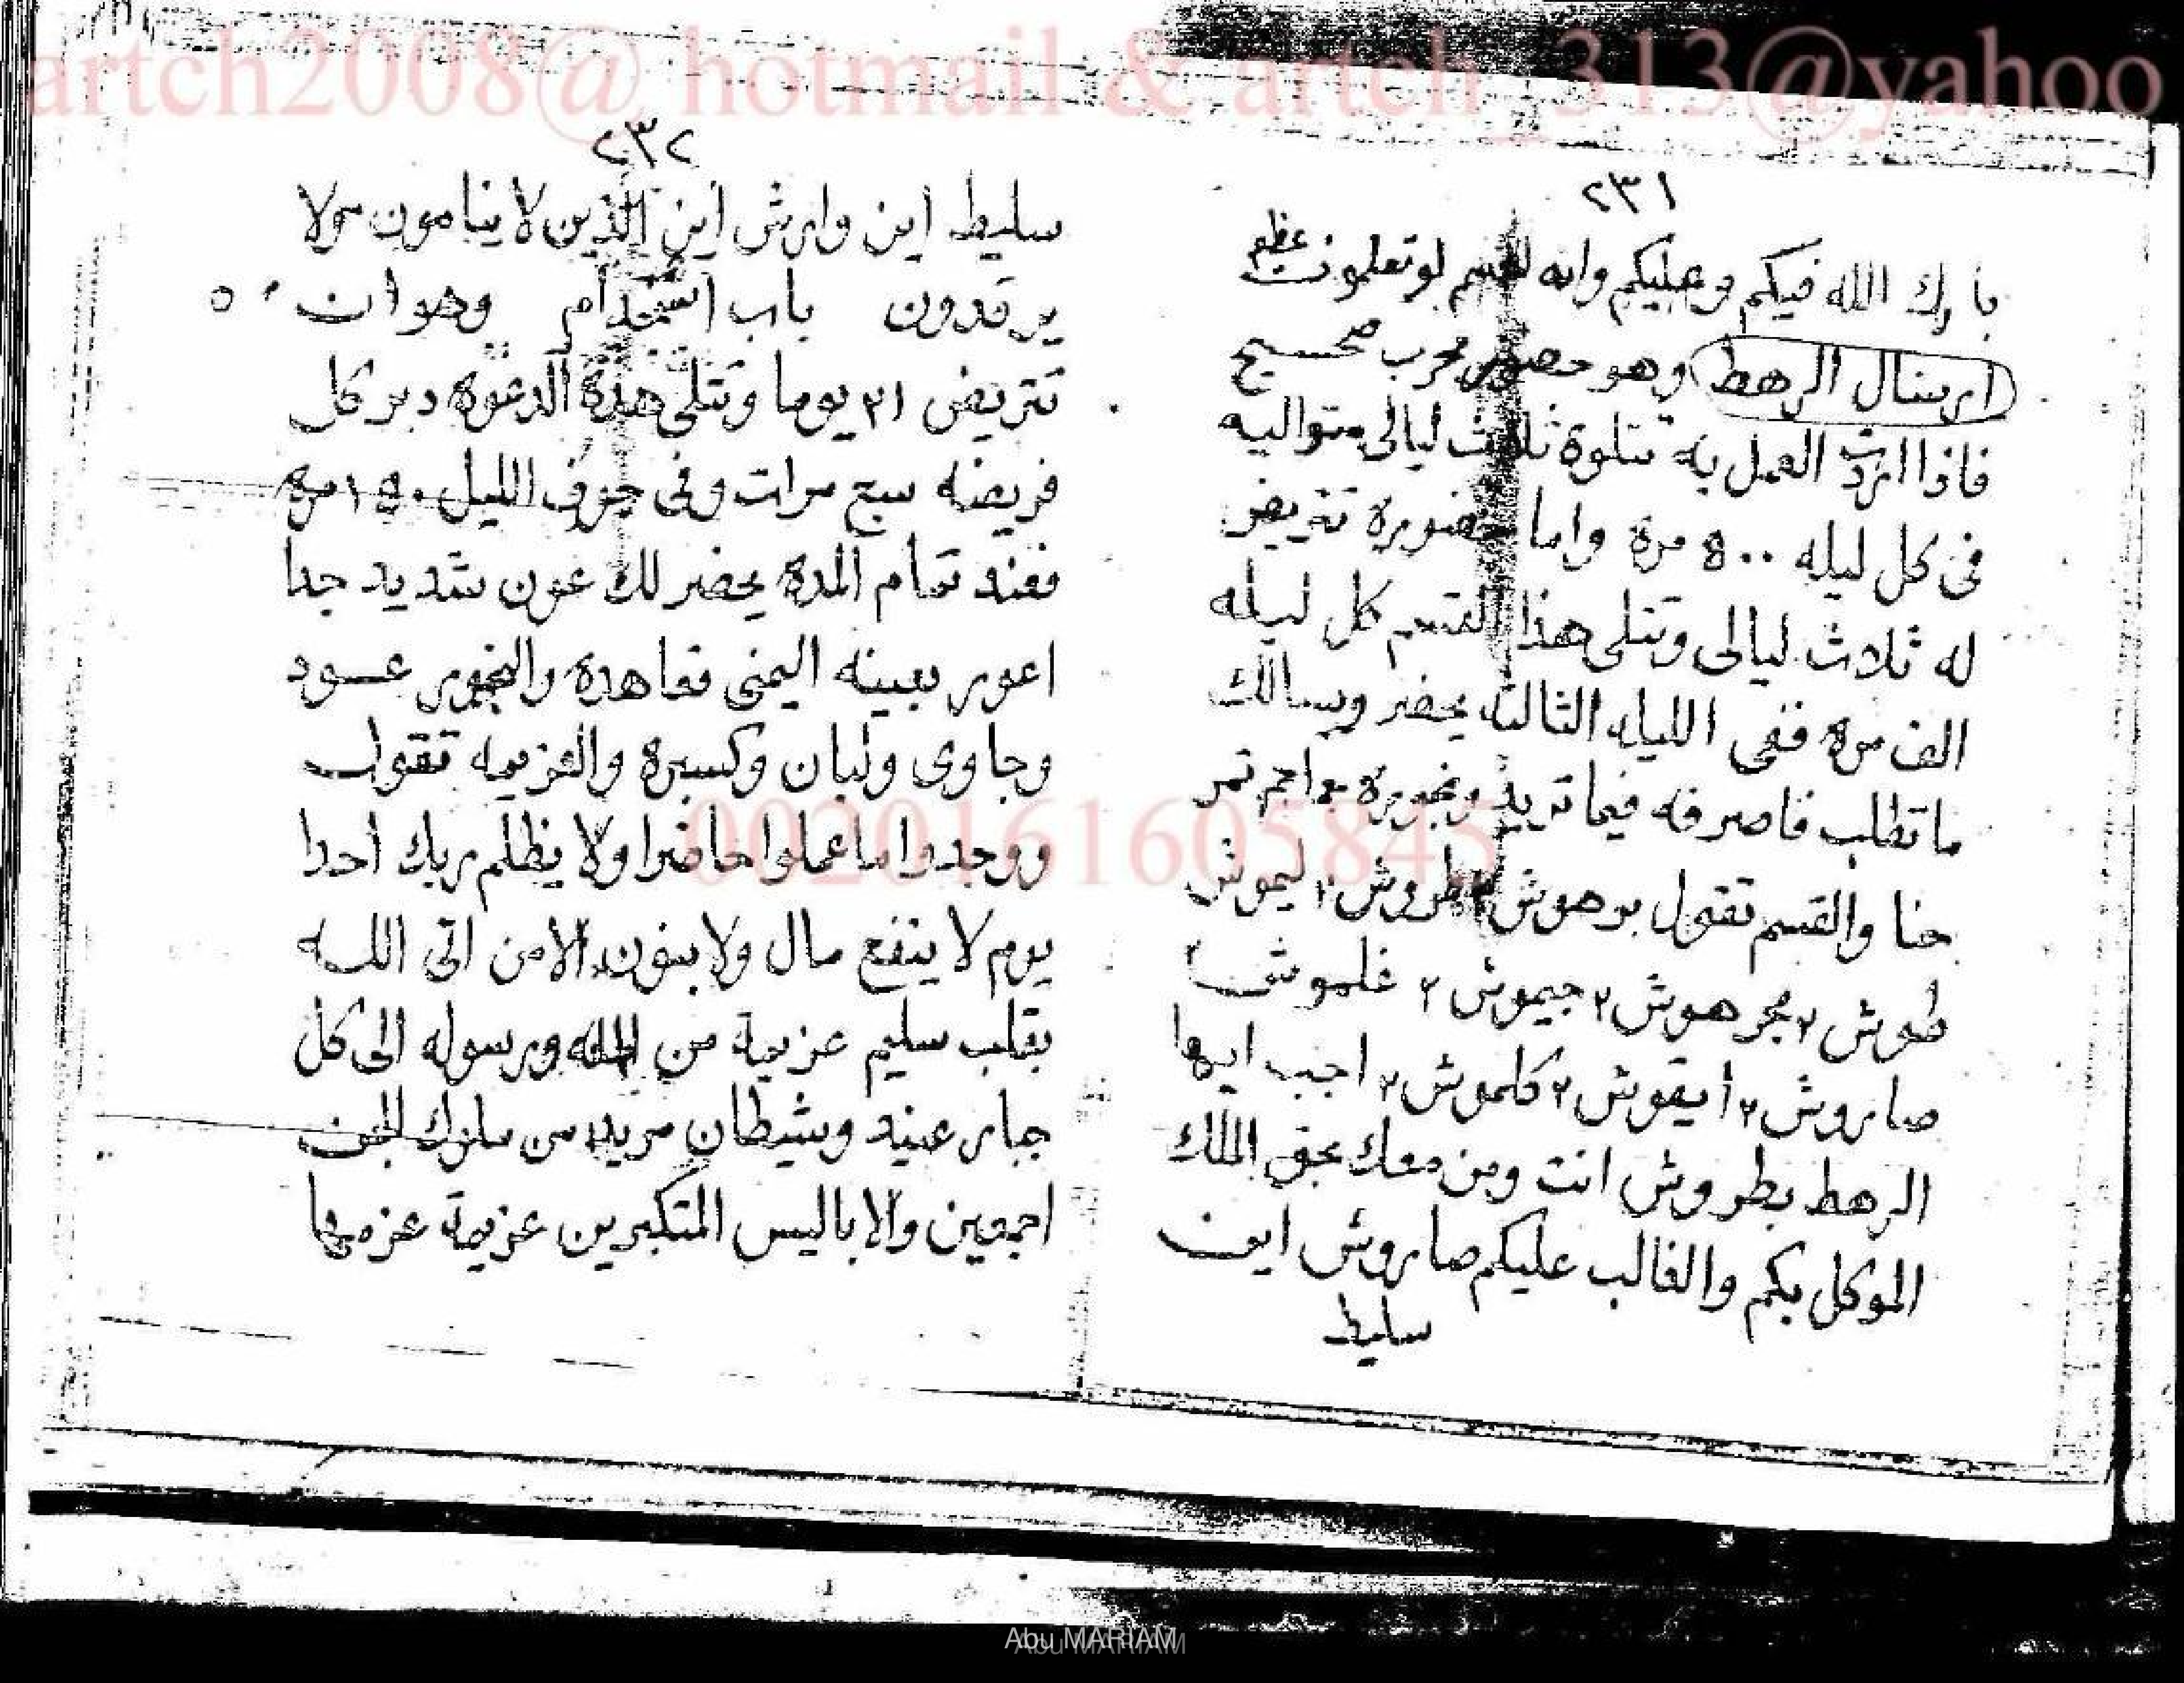 artch2008@ hotmail & artch_313@yahoo
٢٣١
بارك الله فيكم وعليكم وانه لقسم لو تعلمون عظيم
ارسال الرهط وهو حضور مجرب صحيح
فاذا اردت العمل به تتلوة ثلاث ليالى متواليه
فى كل ليله ٥٠٠ مرة واما حضوره تتريض
له ثلاث ليالى وتتلى هذا القسم كل ليله
الف مرة ففى الليله الثالثه يحضر ويسالك
ما تطلب فاصرفه فيما تريد وبخوره مراجم تمر
حنا والقسم تقول بوهوش ٢ طروش ٢ ليموش
طوش ٢ مجرهوش ٢ جيموش ٢ غلموش ٢
صاروش ٢ أيقوش ٢ كلموش ٢ اجب ايها
الرهط بطروش انت ومن معك بحق الملك
الموكل بكم والغالب عليكم صاروش اين
سليط
٢٣٢
سليط اين وارش اين الذين لا ينامون ولا
يرقدون باب استخدام وهو ان
تتريض ٢١ يوما وتتلى هذة الدعوة دبر كل
فريضه سبع مرات وفى جوف الليل ١٥٠ مرة
فعند تمام المدة يحضر لك عون شديد جدا
اعور بعينه اليمنى فعاهدة والبخور عود
وجاوى ولبان وكسبرة والعزيمه تقول
ووجدوا ما عملوا حاضرا ولا يظلم ربك احدا
يوم لا ينفع مال ولا بنون الا من اتى الله
بقلب سليم عزيمة من الله ورسوله الى كل
جبار عنيد وشيطان مريد من ملوك الجن
اجمعين والاباليس المتكبرين عزيمة عزمها
0020161605845
Abu MARIAM